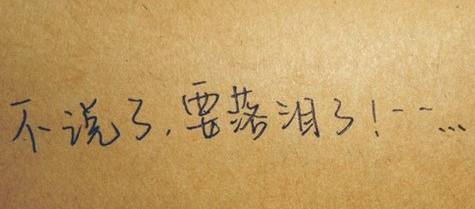 不说了,要落泪了!--...